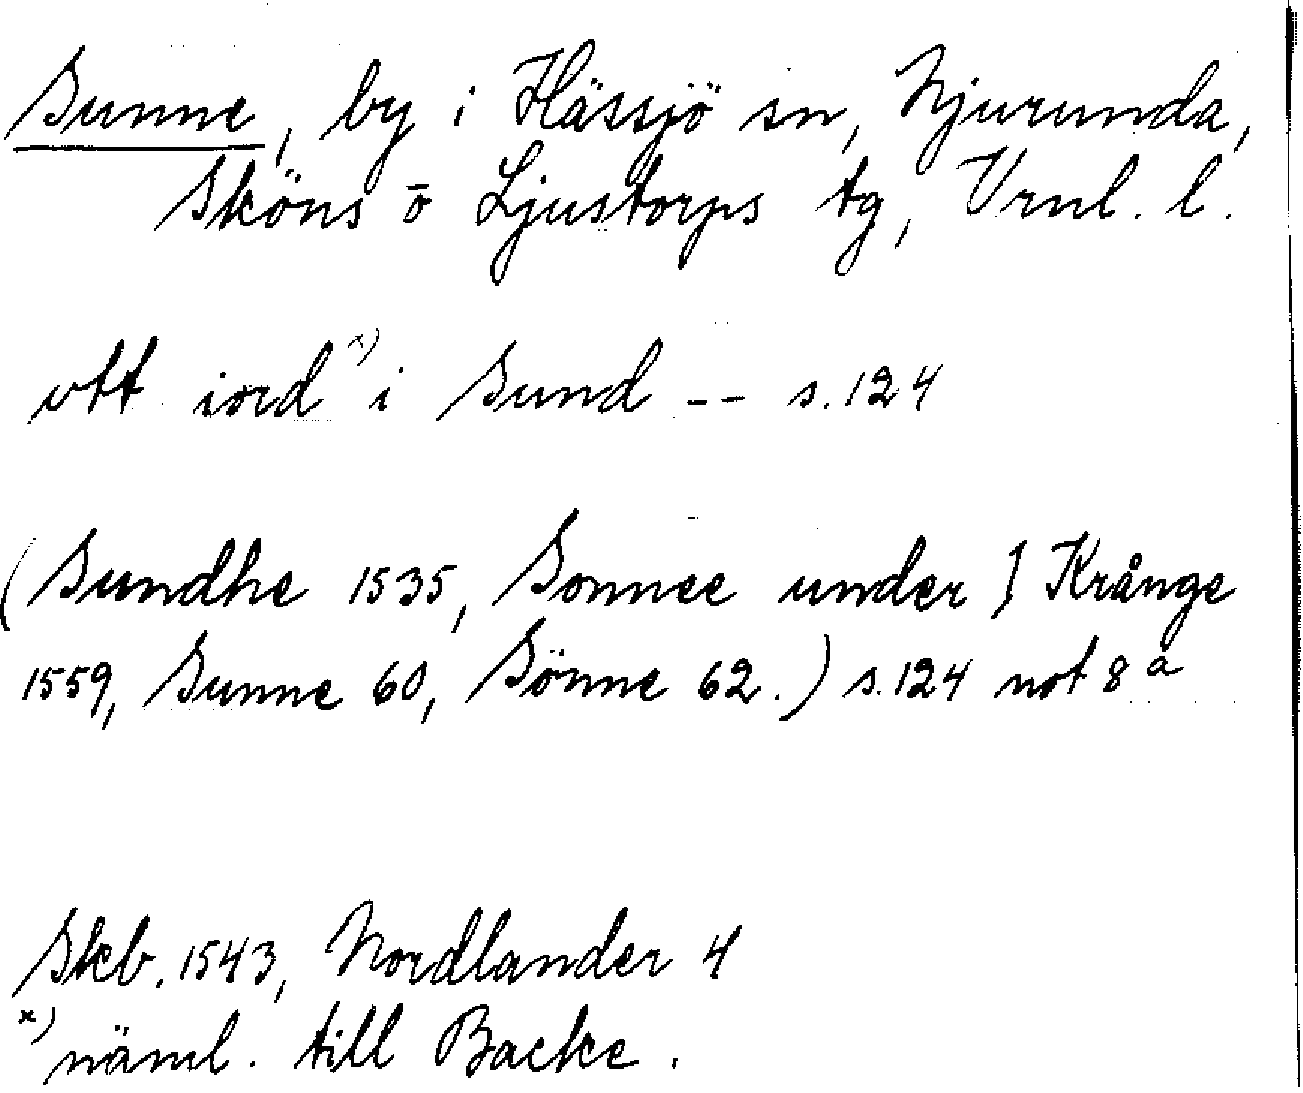 Sunne, by i Hässjö sn, Njurunda,
Sköns o Ljustorps tg, Vrnl. l.
vtt iord x) i Sund -- s. 124
(Sundhe 1535, Sonnee under } Krånge
1559, Sunne 60, Sönne 62.) s. 124 not 8 a
Skb. 1543, Nordlander 4
x) näml. till Backe.